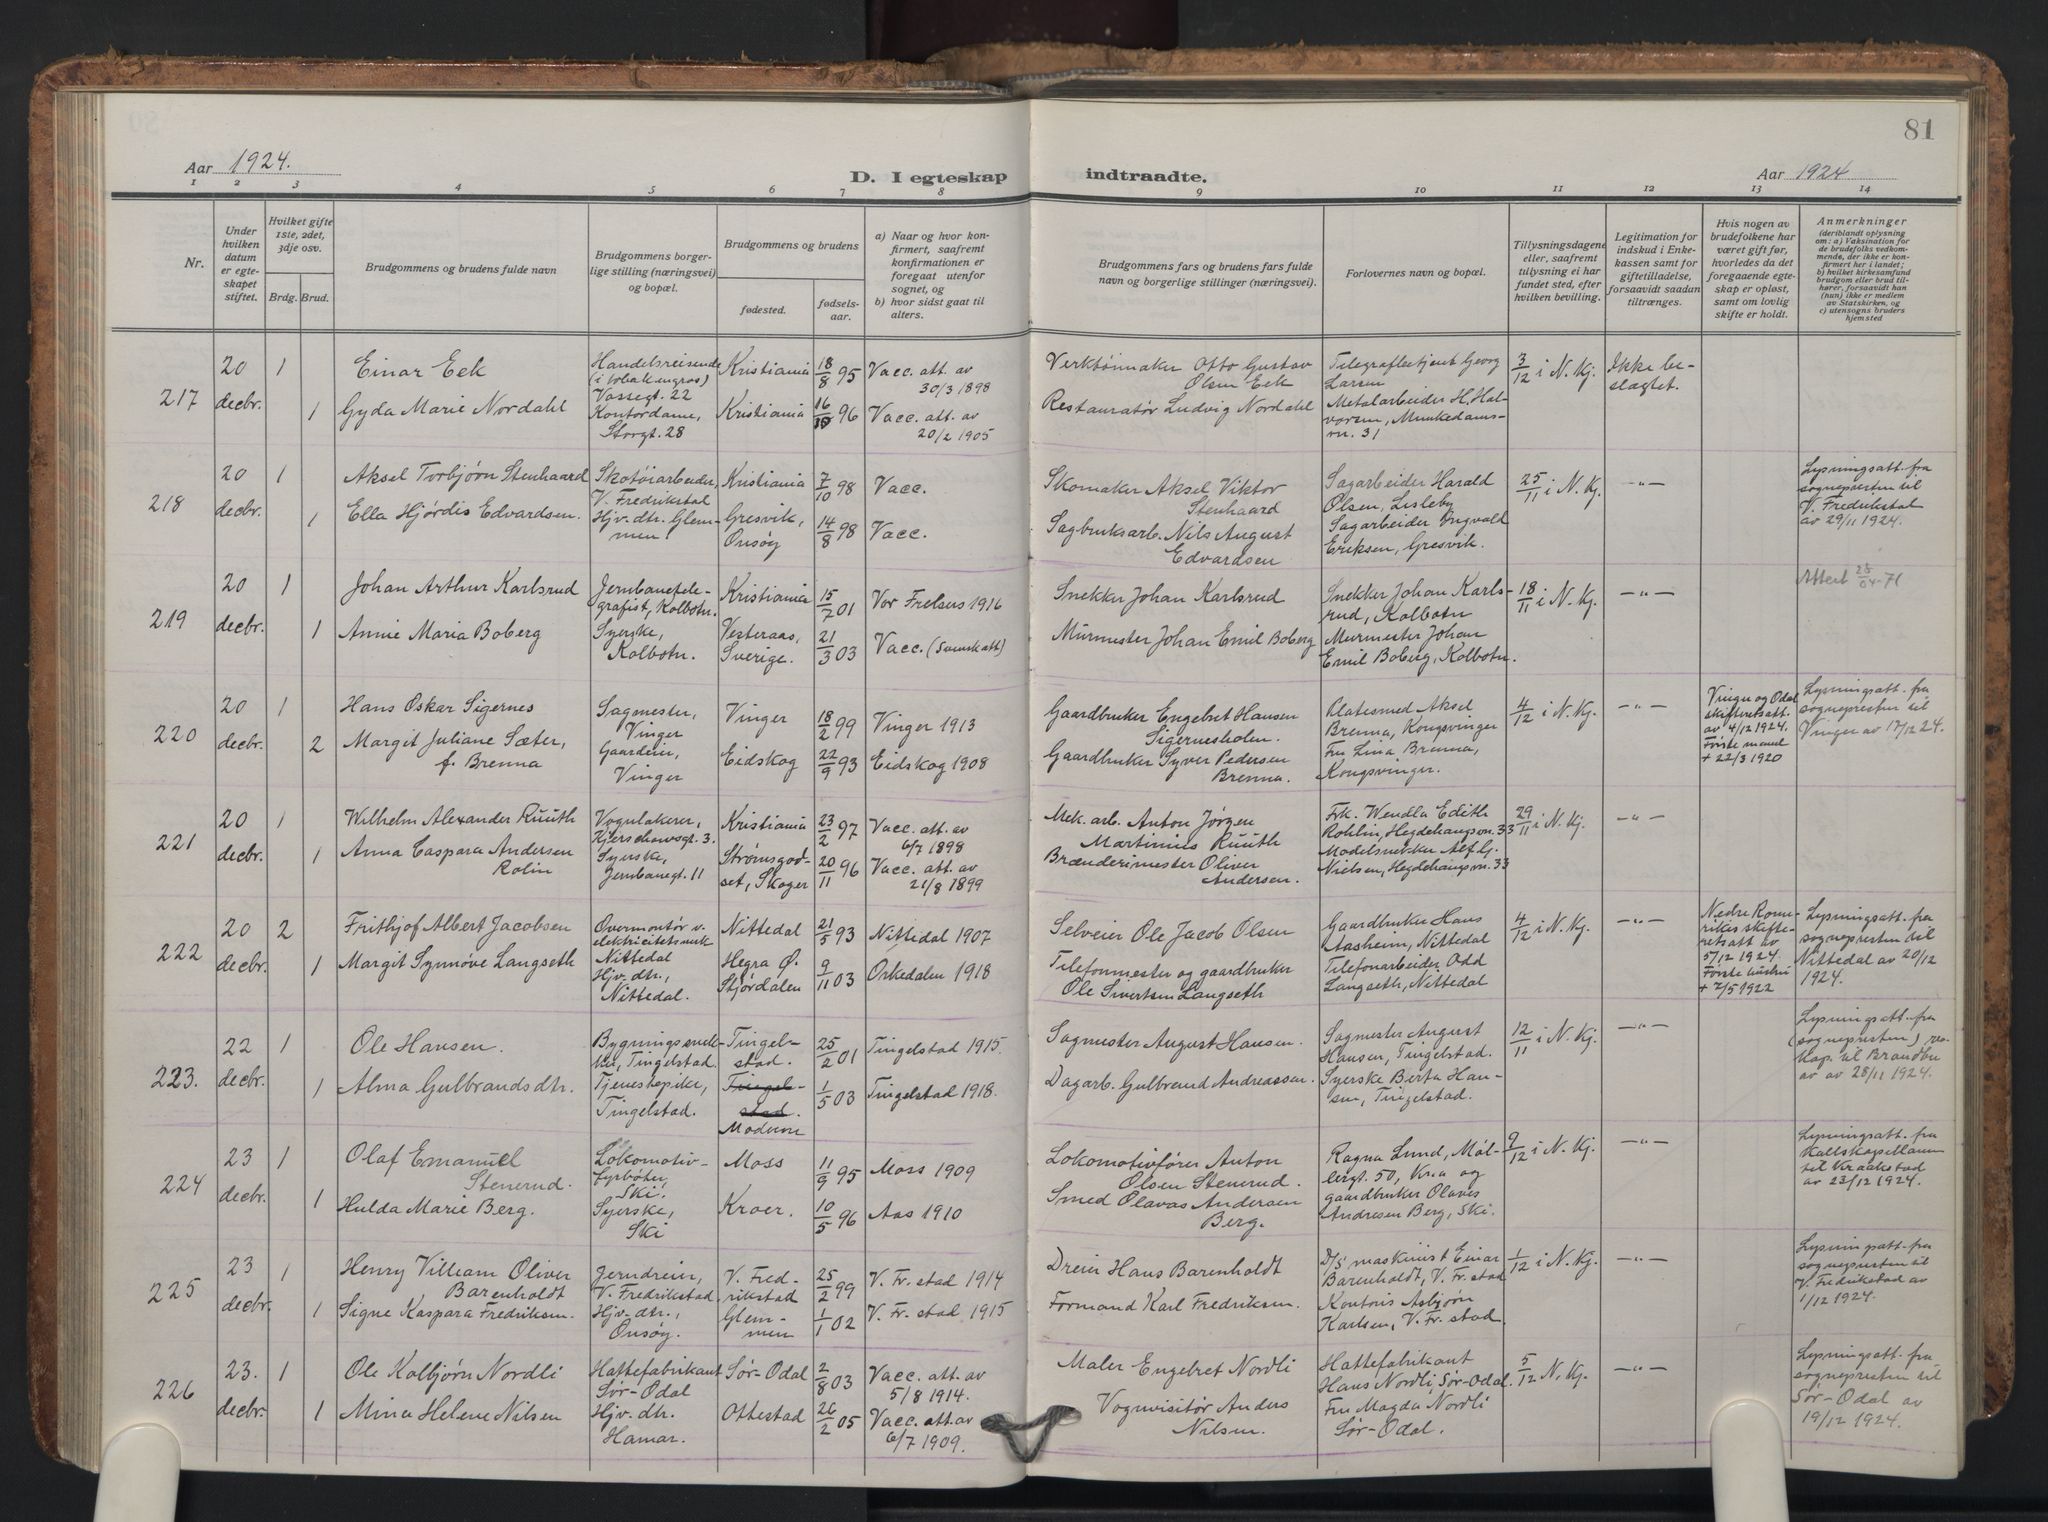 81
Aar 1924.
D. I egteskap indtraadte.
Aar 1924
1 2 3 4 5 6 7 8 9 10 11 12 13 14
Nr.
Under hvilken datum er egteskapet stiftet.
Hvilket gifte 1ste, 2det, 3dje osv.
Brdg. Brud.
Brudgommens og brudens fulde navn
Brudgommens borgerlige stilling (næringsvei) og bopæl.
Brudgommens og brudens
fødested.
fødselsaar.
a) Naar og hvor konfirmert, saafremt konfirmationen er foregaat utenfor sognet, og
b) hvor sidst gaat til alters.
Brudgommens fars og brudens fars fulde navn og borgerlige stillinger (næringsvei).
Forlovernes navn og bopæl.
Tillysningsdagene eller, saafremt tillysning ei har fundet sted, efter hvilken bevilling.
Legitimation for indskud i Enkekassen samt for giftetilladelse, forsaavidt saadan tiltrænges.
Hvis nogen av brudefolkene har været gift før, hvorledes da det foregaaende egteskap er opløst, samt om lovlig skifte er holdt.
Anmerkninger
(deriblandt oplysning om: a) Vaksination for de brudefolks vedkommende, der ikke er konfirmert her i landet; b) hvilket kirkesamfund brudgom eller brud tilhører, forsaavidt han (hun) ikke er medlem av Statskirken, og c) utensogns bruders hjemsted
217
20 decbr.
1
Einar Eek
Handelsreisende (i tobak engros) Vossegt. 22
Kristiania
18/8 95
Vacc. att. av 30/3 1898
Verktøimaker Otto Gustav Olsen Eek
Telegrafbetjent Georg Larsen
3/12 i N. Kj.
Ikke beslægtet.
1
Gyda Marie Nordahl
Kontordame, Storgt. 28
Kristiania
16/10 96
Vacc. att. av 20/2 1905
Restauratør Ludvig Nordahl
Metalarbeider H. Halvorsen, Munkedamsvn. 31
218
20 decbr.
1
Aksel Torbjørn Stenhaard
Skotøiarbeider, V. Fredrikstad
Kristiania
7/10 98
Vacc.
Skomaker Aksel Viktor Stenhaard
Sagarbeider Harald Olsen, Lisleby
25/11 i N. Kj.
-"-
Lysningsatt. fra sognepresten til V. Fredrikstad av 29/11 1924.
1
Ella Hjørdis Edvardsen.
Hjv. dtr. Glemmen
Gresvik, Onsøy
14/8 98
Vacc.
Sagbruksarb. Nils August Edvardsen
Sagarbeider Ingvald Eriksen, Gresvik.
219
20 decbr.
1
Johan Arthur Karlsrud
Jernbanetelegrafist, Kolbotn.
Kristiania
15/7 01
Vor Frelsers 1916
Snekker Johan Karlsrud
Snekker Johan Karlsrud, Kolbotn
18/11 i N. Kj.
-"-
Attert 28/04-71
1
Annie Maria Boberg
Syerske, Kolbotn.
Vesteraas, Sverige.
21/3 03
Vacc. (Svensk att)
Murmester Johan Emil Boberg
Murmester Johan Emil Boberg, Kolbotn.
220
20 decbr.
1
Hans Oskar Sigernes
Sagmester, Vinger
Vinger
18/2 99
Vinger 1913
Gaardbruker Engebret Hansen Sigernesholen.
Platesmed Aksel Brenna, Kongsvinger
4/12 i N. Kj.
-"-
Vinger og Odal skifteretsatt. av 4/12 1924. Første mand + 22/3 1920
Lysningsatt. fra sognepresten til Vinger av 17/12 24.
2
Margit Juliane Sæter, f. Brenna
Gaardeier, Vinger
Eidskog
22/9 93
Eidskog 1908
Gaardbruker Syver Pedersen Brenna.
Fru Lina Brenna, Kongsvinger.
221
20 decbr.
1
Wilhelm Alexander Ruuth
Vognlakerer, Kjerschowsgt. 3.
Kristiania
23/2 97
Vacc. att. av 6/7 1898
Mek. arb. Anton Jørgen Martinius Ruuth
Frk. Wendla Edith Rohlin, Hegdehaugsvn. 33
29/11 i N. Kj.
-"-
1
Anna Caspara Andersen Rolin
Syerske, Jernbanegt. 11
Strømsgodset, Skoger
20/11 96
Vacc. att. av 21/8 1899
Brænderimester Oliver Andersen.
Modelsnekker Alf G. Nielsen, Hegdehaugsvn. 33
222
20 decbr.
2
Frithjof Albert Jacobsen
Overmontør v. elektricitetsverk Nittedal
Nittedal
21/5 93
Nittedal 1907
Selveier Ole Jacob Olsen
Gaardbruker Hans Aasheim, Nittedal
4/12 i N. Kj.
-"-
Nedre Romerikes skifteretsatt av 5/12 1924. Første hustru + 7/5 1922
Lysningsatt. fra sognepresten til Nittedal av 20/12 1924.
1
Margit Synnøve Langseth
Hjv. dtr., Nittedal.
Hegra Ø. Stjørdalen
9/11 03
Orkedalen 1918
Telefonmester og gaardbruker Ole Sivertsen Langseth
Telefonarbeider Odd Langseth, Nittedal
223.
22 decbr.
1
Ole Hansen.
Bygningssnekker, Tingelstad.
Tingelstad.
25/2 01
Tingelstad 1915.
Sagmester August Hansen.
Sagmester August Hansen, Tingelstad.
12/11 i N. Kj.
-"-
Lysningsatt. fra (sognepresten) res. kap. til Brandbu av av 28/11 1924.
1
Alma Gulbrandsdtr.
Tjenestepike, Tingelstad.
Tingelstad. Modum
1/5 03
Tingelstad 1918.
Dagarb. Gulbrand Andreassen.
Syerske Berta Hansen, Tingelstad.
224
23 decbr.
1
Olaf Emanuel Stenerud.
Lokomotivfyrbøter, Ski.
Moss
11/9 95
Moss 1909
Lokomotivfører Anton Olsen Stenerud.
Ragna Lund, Møllergt. 50, Kra og
9/12 i N. Kj.
-"-
Lysningsatt. fra Kallskapellanen til Kraakstad av 23/12 1924.
1
Hulda Marie Berg.
Syerske, Ski
Kroer.
10/5 96
Aas 1910
Smed Olavas Andersen Berg.
gaardbruker Olaves Andresen Berg, Ski.
225
23 decbr.
1
Henry Villiam Oliver Barenholdt
Jerndreier, V. Fredrikstad
V. Fredrikstad
25/2 99
V. Fr. stad 1914
Dreier Hans Barenholdt
D/s maskinist Einar Barenholdt, V. Fr. stad
1/12 i N. Kj.
-"-
Lysningsatt. fra sognepresten til V. Fredrikstad av 1/12 1924.
1
Signe Kaspara Fredriksen.
Hjv. dtr., Onsøy.
Glemmen
1/1 02
V. Fr. stad 1915
Formand Karl Fredriksen.
Kontoris Asbjørn Karlsen, V. Fr. stad
226
23. decbr.
1
Ole Kolbjørn Nordli
Hattefabrikant Sør-Odal
Sør-Odal
2/8 03
Vacc. att. av 5/8 1914.
Maler Engebret Nordli
Hattefabrikant Hans Nordli, Sør-Odal.
5/12 N. Kj.
-"-
Lysningsatt. fra sognepresten til Sør-Odal av 19/12 1924.
1
Mina Helene Nilsen
Hjv. dtr. Hamar.
Ottestad
26/2 05
Vacc. att. av 6/7 1909.
Vognvisitør Anders Nilsen.
Fru Magda Nordli Sør-Odal.